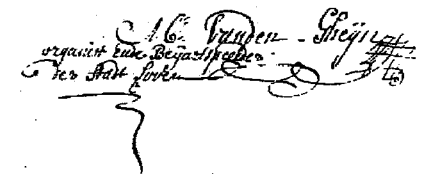 M: Vanden-Gheÿn
organist ende Beÿaertspeelder
der Stadt Loven